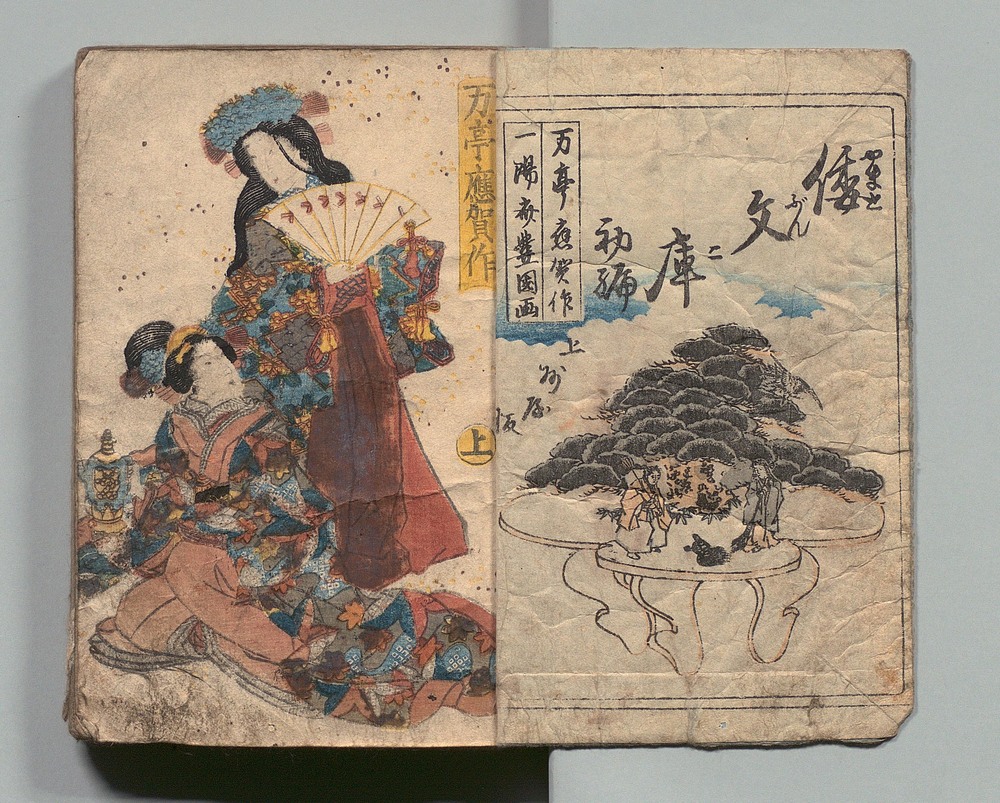 倭文庫
やまと
ぶん
こ
初編
万亭應賀作
一陽斎豊国画
上州屋
板
万亭應賀作
上